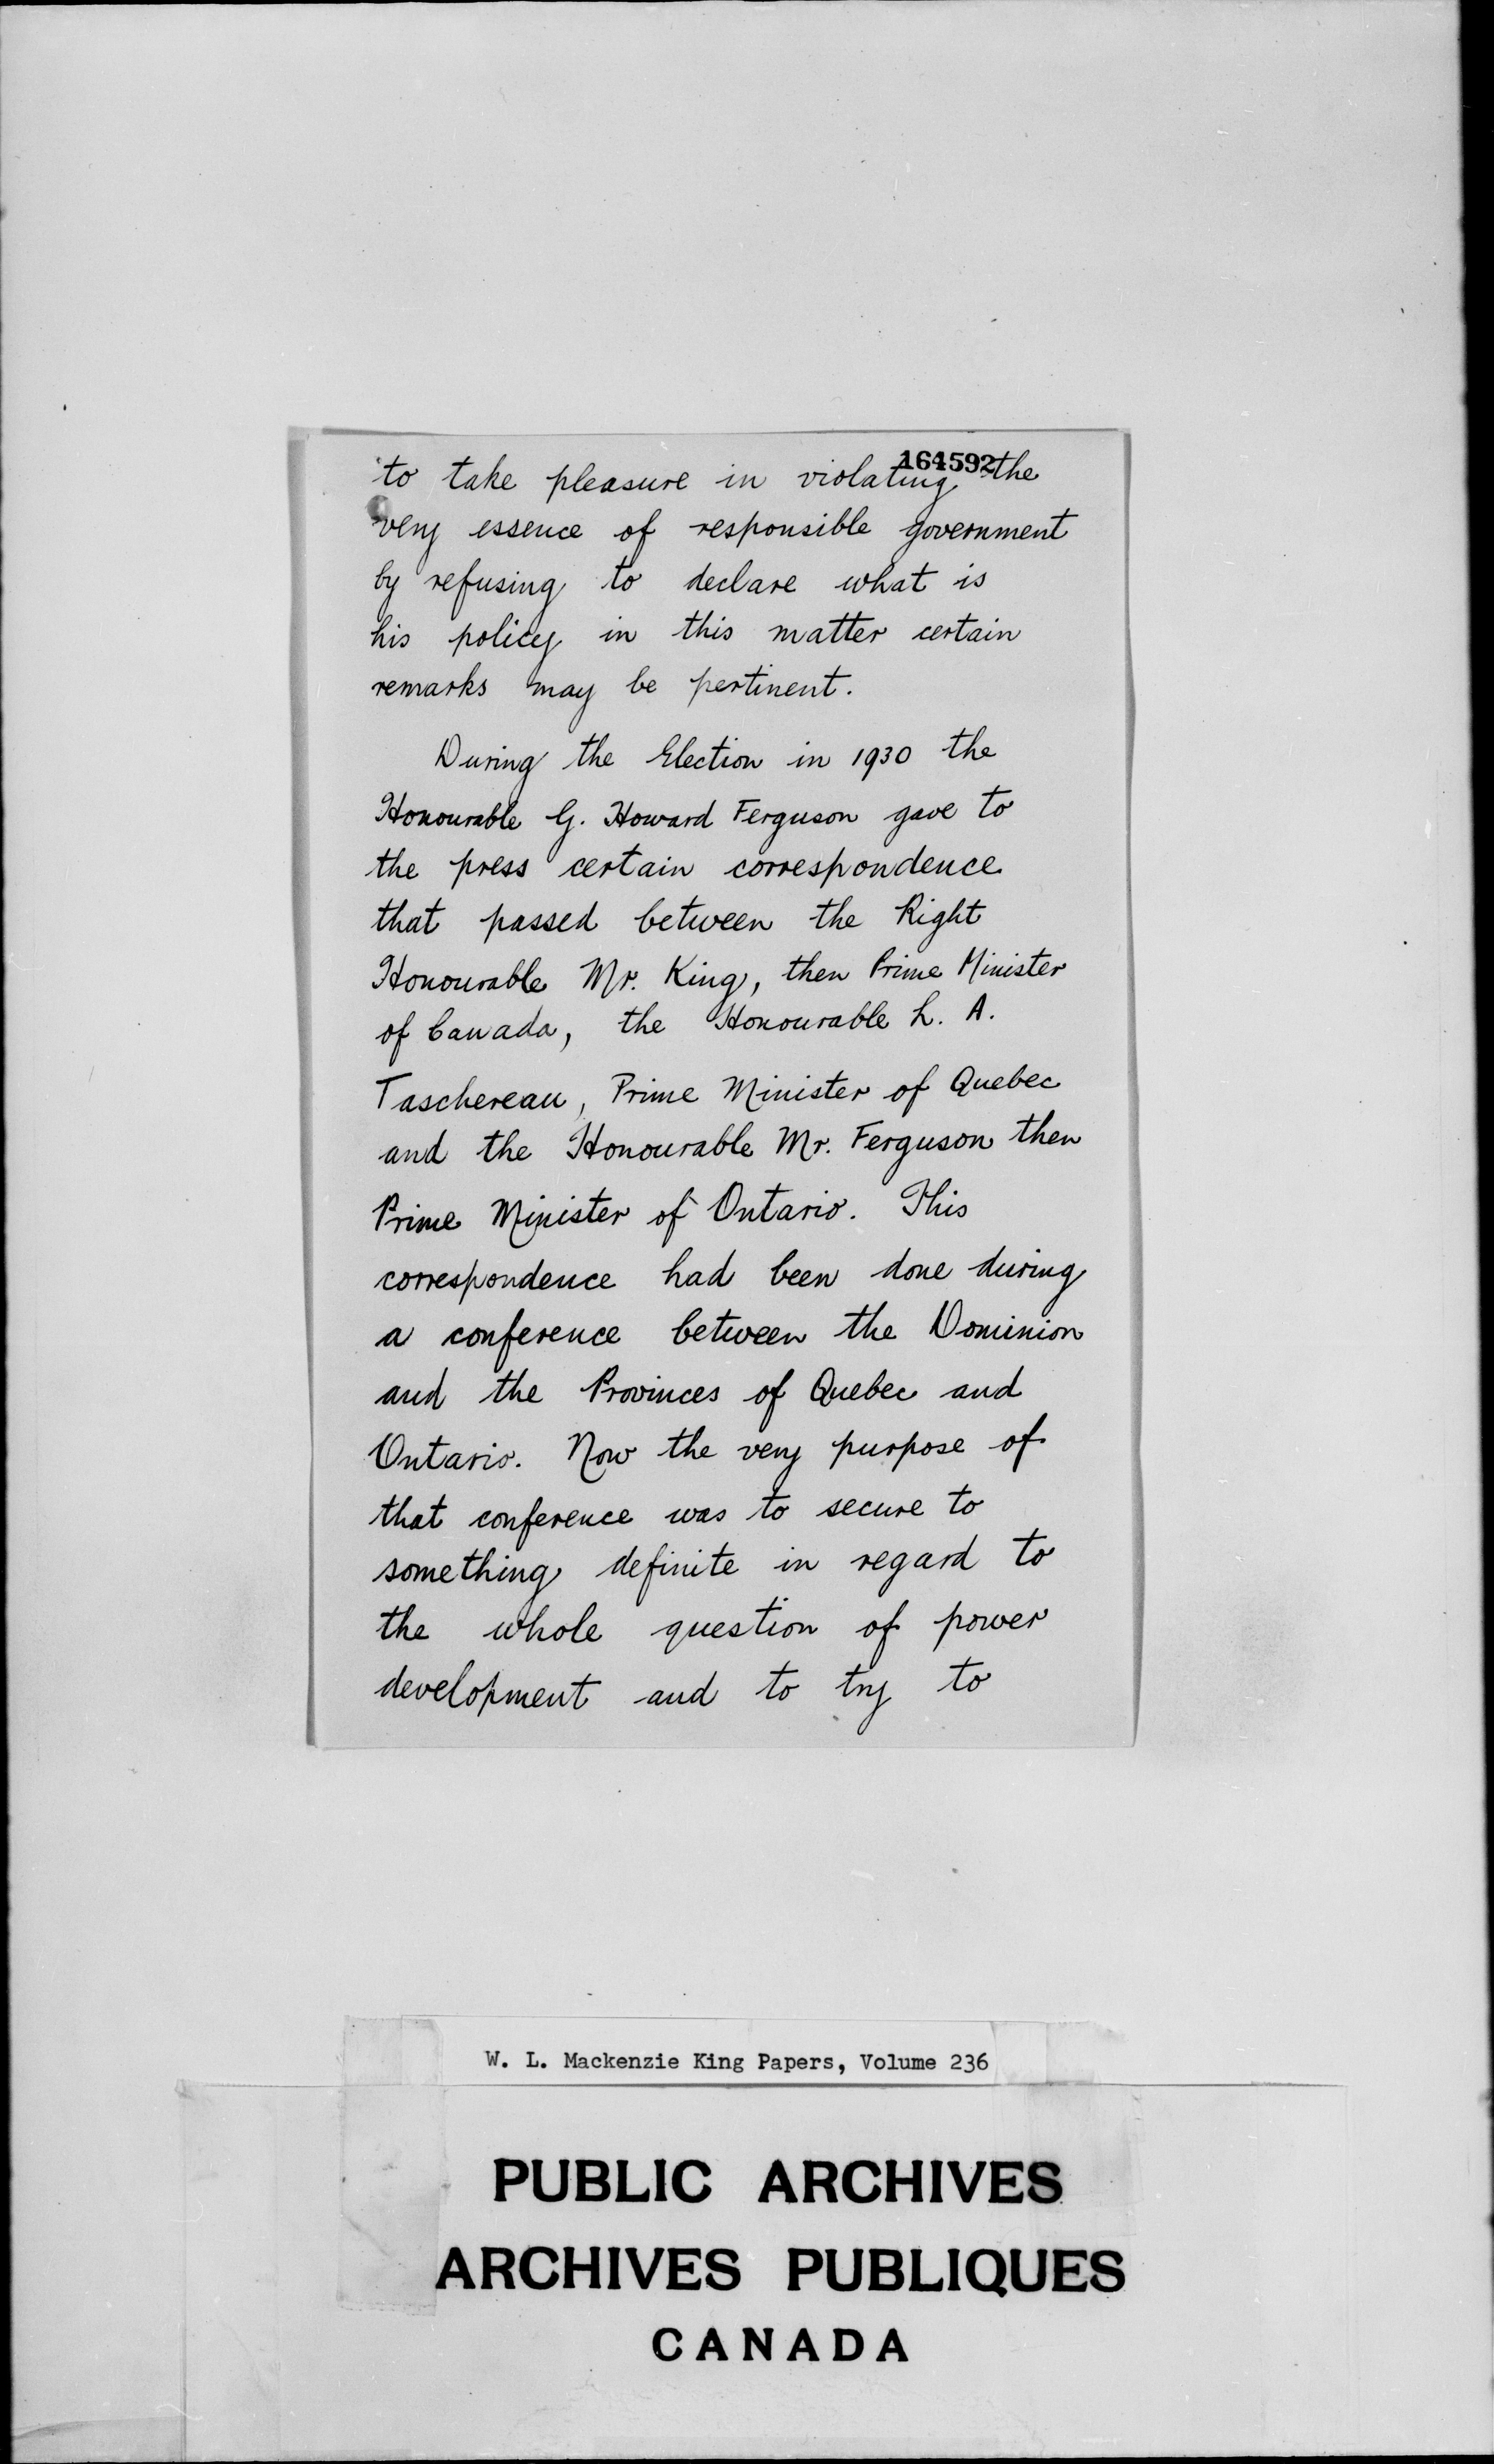 164592
to take pleasure in violating the
very essence of responsible government
by refusing to declare what is
his policy in this matter certain
remarks may be pertinent.
During the Election in 1930 the
Honourable G. Howard Ferguson gave to
the press certain correspondence
that passed between the Right
Honourable Mr. King, then Prime Minister
of Canada, the Honourable L. A.
Taschereau, Prime Minister of Quebec
and the Honourable Mr. Ferguson then
Prime Minister of Ontario. This
correspondence had been done during
a conference between the Dominion
and the Provinces of Quebec and
Ontario. Now the very purpose of
that conference was to secure to
something definite in regard to
the whole question of power
development and to try to
W. L. Mackenzie King Papers, Volume 236
PUBLIC ARCHIVES
ARCHIVES PUBLIQUES
CANADA